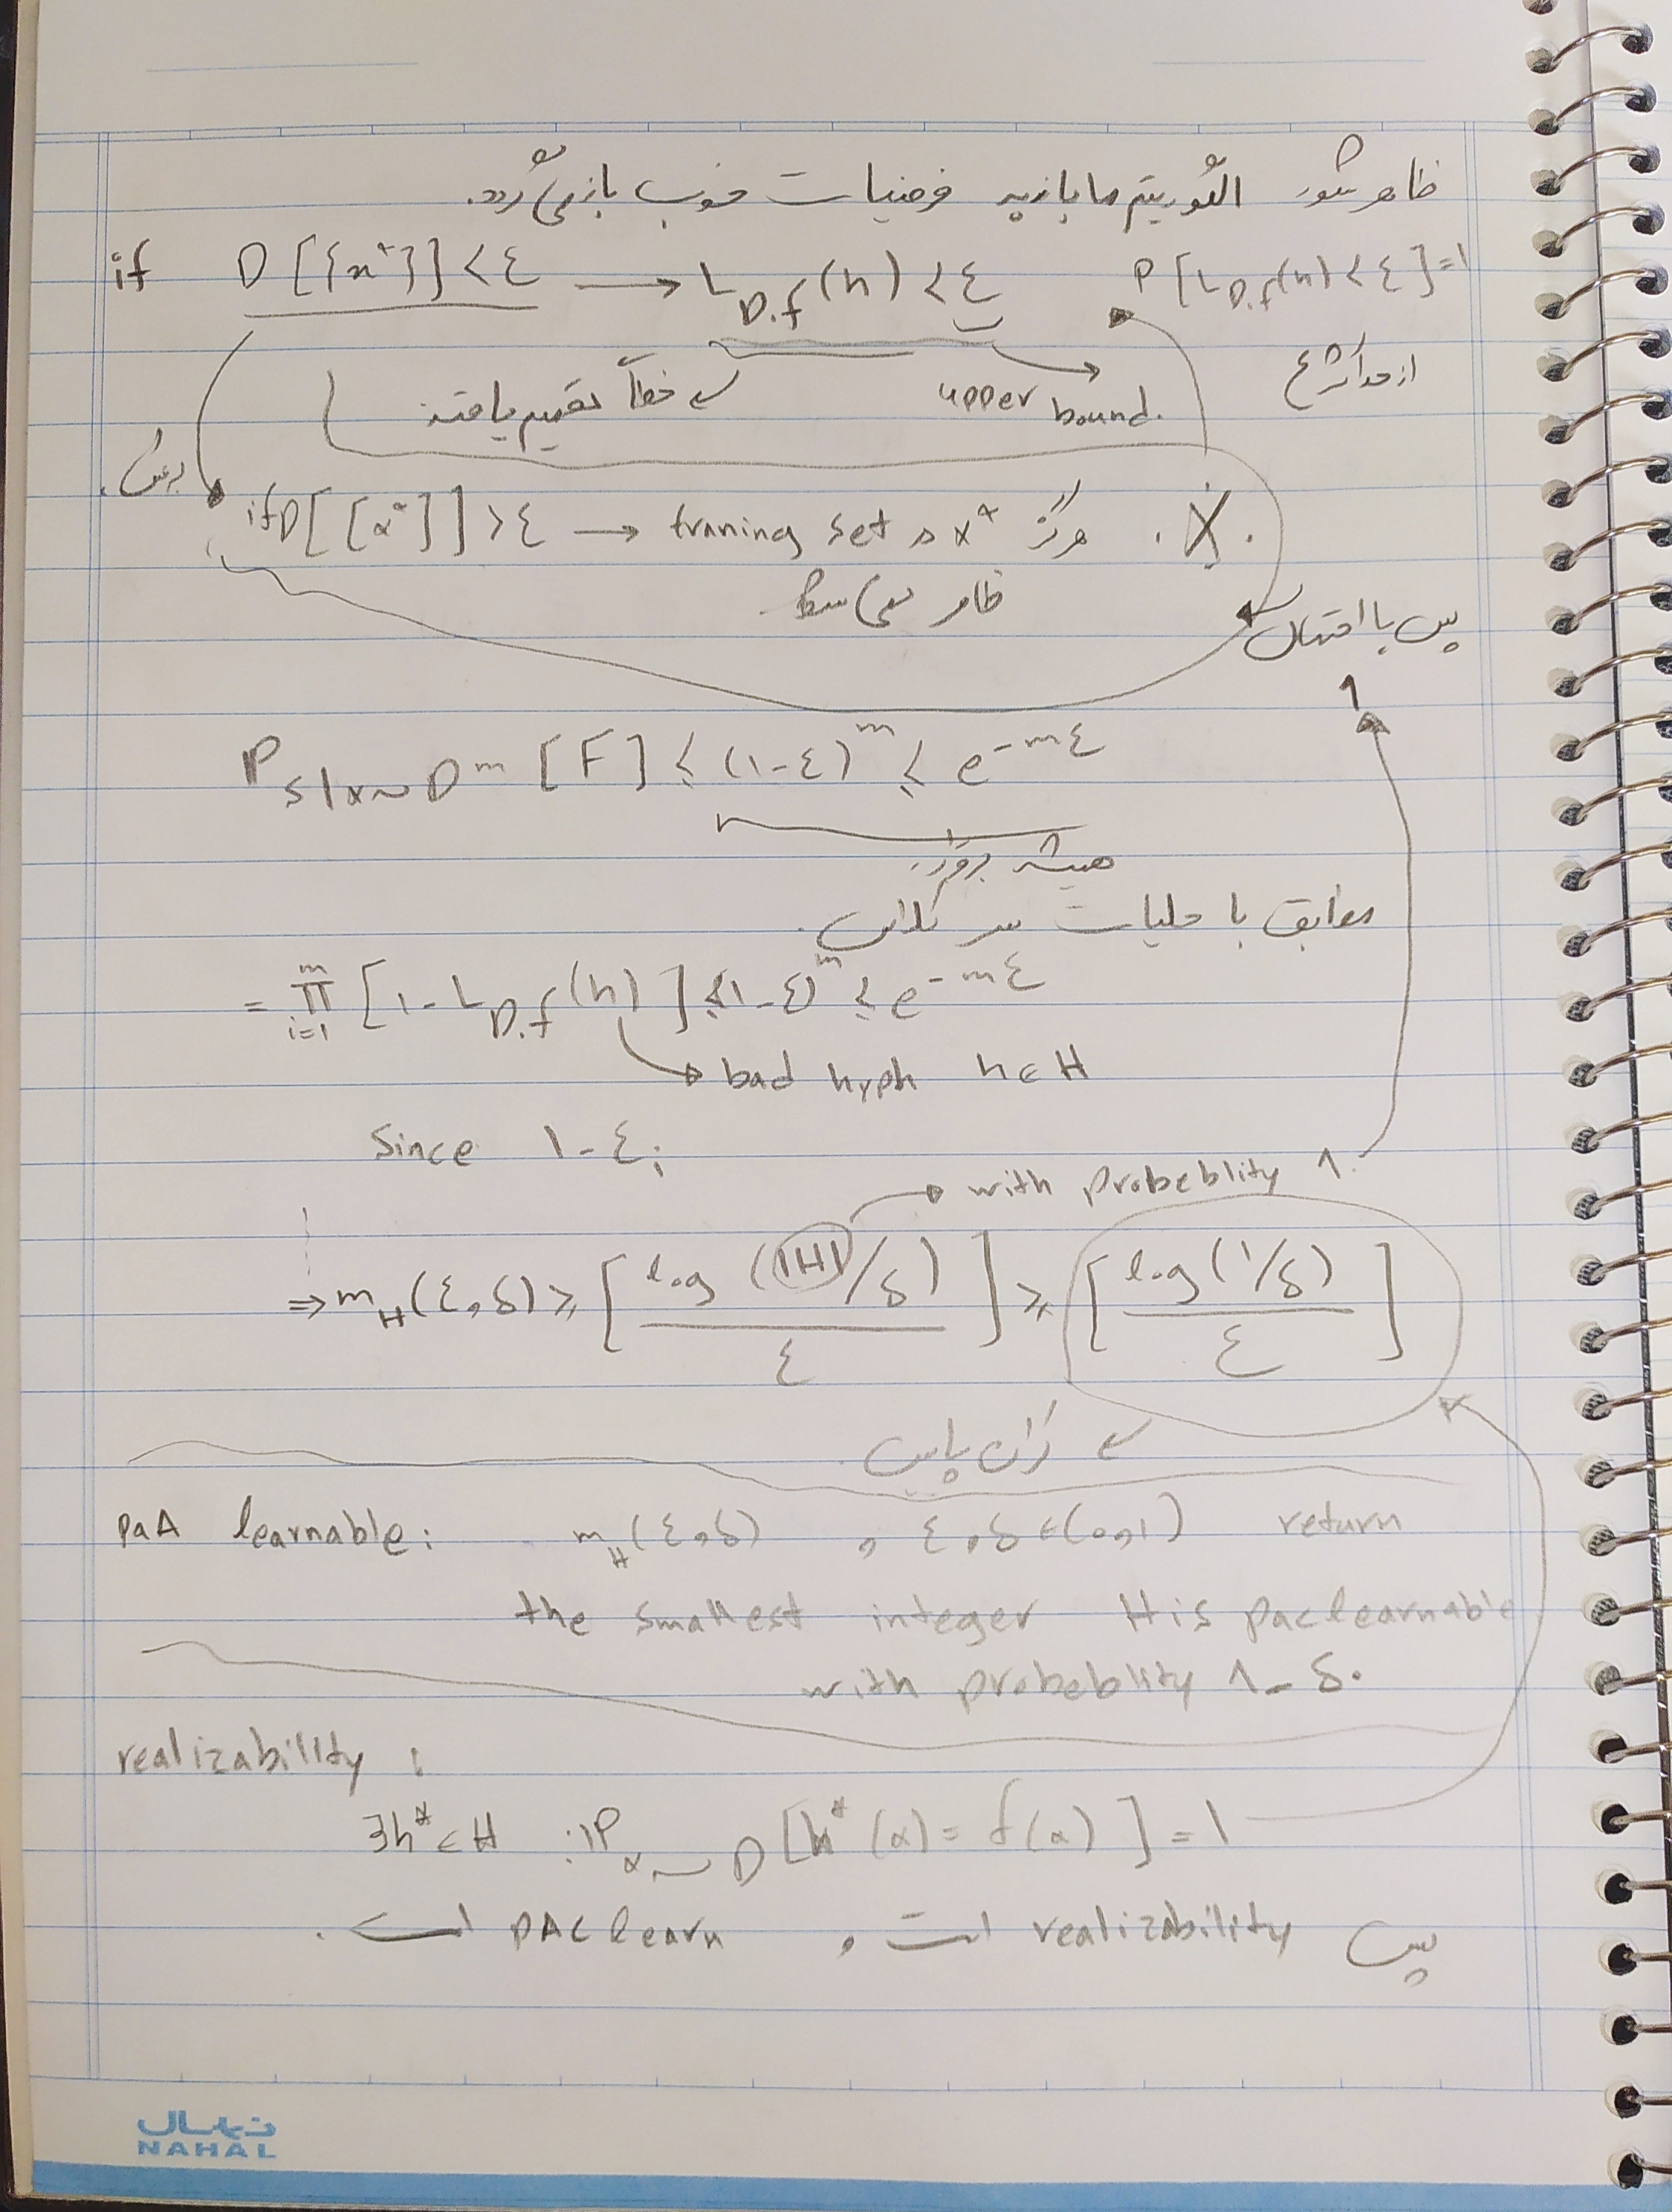 ظاهر شود الگوریتم ما بازیه فرضیات خوب باز می‌گردد.
if D[{x*}] < ε → L_{D,f}(h) < ε P[L_{D,f}(h) < ε] = 1
upper bound. خطا تعمیم یافته
برعکس.
if D[{x*}] > ε → traning set د x* هرگز . X .
ظاهر نمی
پس با احتمال
1
P_{S|x~D^m}[F] ≤ (1-ε)^m ≤ e^{-mε}
همیشه برقرار
مطابق با جلسات سر کلاس.
= ∏_{i=1}^{m} [1 - L_{D,f}(h)] ≤ (1-ε)^m ≤ e^{-mε}
bad hyph h∈H
Since 1-ε;
with probeblity 1.
⇒ m_H(ε,δ) ≥ [log(|H|/δ) / ε] ≥ [log(1/δ) / ε]
کران پایین
learnable: m_H(ε,δ) , ε,δ ∈ (0,1) return
the smallest integer H is pac learnable
with probeblity 1-δ.
realizability :
∃h*∈H :P_{x~D}[h*(x) = f(x)] = 1
پس realizability است و PAC learn است.
نهال
NAHAL